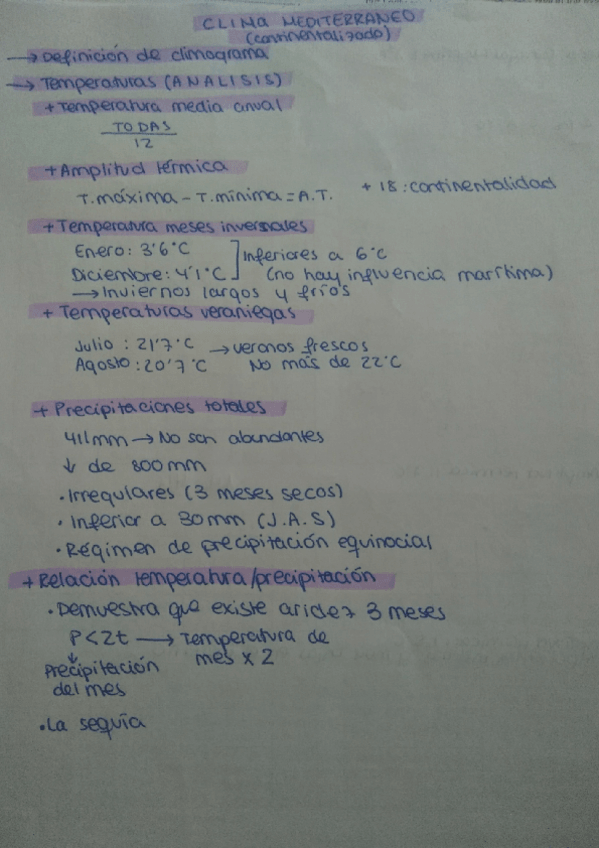 CLIMA MEDITERRANEO
(continentalizado)
→ Definición de climograma
→ Temperaturas (ANALISIS)
+ Temperatura media anual
TODAS
12
+ Amplitud térmica
T.máxima - T.mínima = A.T. + 18: continentalidad
+ Temperatura meses invernales
Enero: 3'6°C ] Inferiores a 6°C
Diciembre: 4'1°C ] (no hay influencia marítima)
→ Inviernos largos y fríos
+ Temperaturas veraniegas
Julio : 21'7°C → veranos frescos
Agosto : 20'7°C No más de 22°C
+ Precipitaciones totales
411mm → No son abundantes
↓ de 800mm
· Irregulares (3 meses secos)
· Inferior a 30mm (J.A.S)
· Régimen de precipitación equinocial
+ Relación temperatura/precipitación
· Demuestra que existe aridez 3 meses
P<2t → Temperatura de
↓ mes x 2
Precipitación
del mes
· La sequía